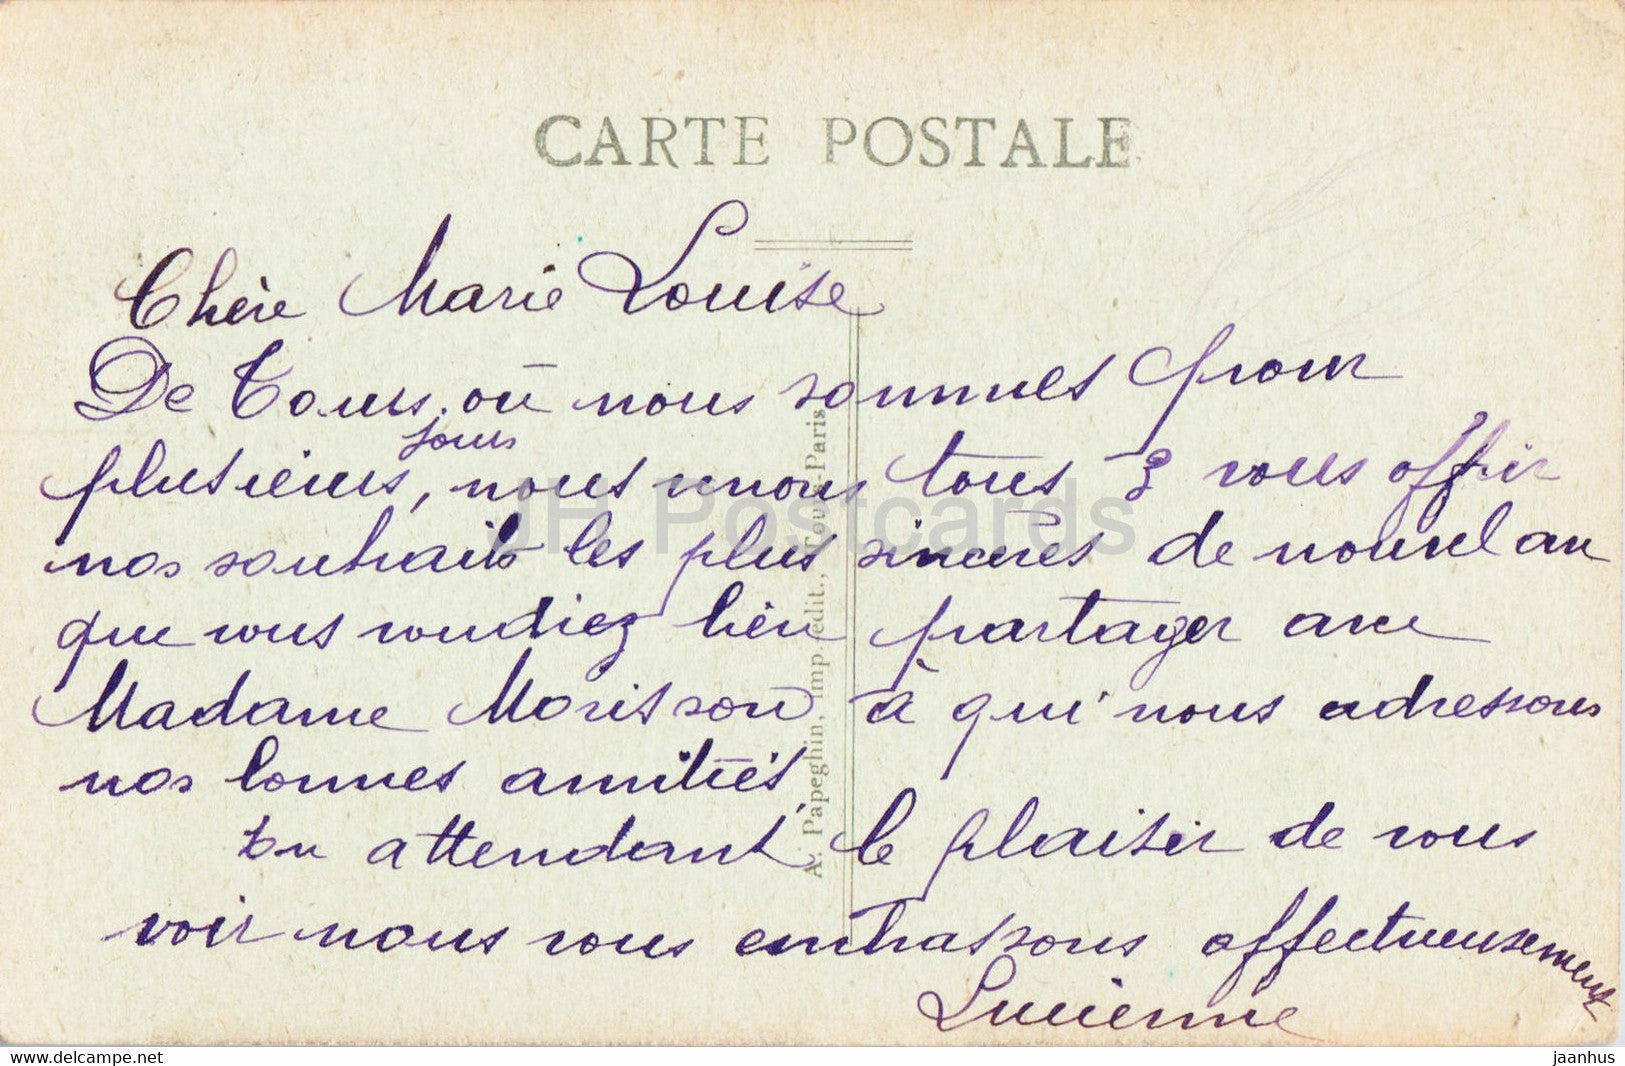 CARTE POSTALE
Chère Marie Louise
De Tours, où nous sommes pour
plusieurs jours, nous venons tous 3 vous offrir
nos souhaits les plus sincères de nouvel an
que vous voudrez bien partager avec
Madame Morisson à qui nous adressons
nos bonnes amitiés,
En attendant le plaisir de vous
voir nous vous embrassons affectueusement
Lucienne
A. Papeghin, Imp édit., Tours-Paris
JH Postcards
www.delcampe.net
jaanhus